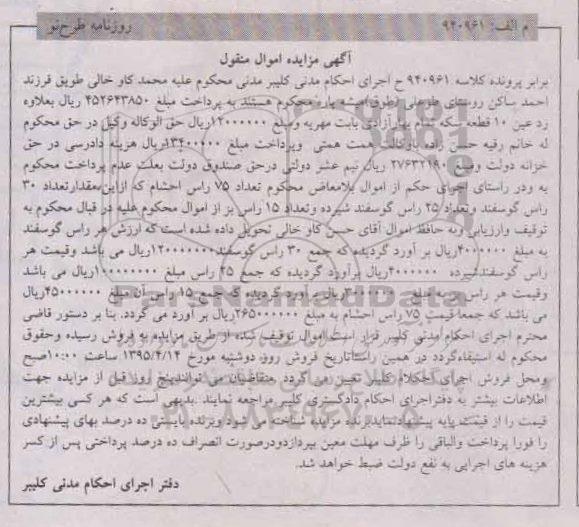 م الف: ۹۴۰۹۶۱
روزنامه طرح‌نو
آگهی مزایده اموال منقول
برابر پرونده کلاسه ۹۴۰۹۶۱ ح اجرای احکام مدنی کلیبر مدنی محکوم علیه محمد کاو خالی طویق فرزند
احمد ساکن روستای طوعلی محکوم هستند به پرداخت مبلغ ۴۵۲۶۴۳۸۵۰ ریال بعلاوه
رد عین ۱۰ قطعه سکه تمام بهار آزادی بابت مهریه ومبلغ ۱۲۰۰۰۰۰۰ریال حق الوکاله وکیل در حق محکوم
له خانم رقیه حسن زاده باوکالت همت همتی وپرداخت مبلغ ۱۳۴۰۰۰۰۰ ریال هزینه دادرسی در حق
خزانه دولت ومبلغ ۲۷۶۳۲۱۹۰ ریال نیم عشر دولتی درحق صندوق دولت بعلت عدم پرداخت محکوم
به ودر راستای اجرای حکم از اموال بلامعاض محکوم تعداد ۷۵ راس احشام که ازاین‌مقدارتعداد ۳۰
راس گوسفند وتعداد ۲۵ راس گوسفند شیرده وتعداد ۱۵ راس بز از اموال محکوم علیه در قبال محکوم به
توقیف وارزیابی وبه حافظ اموال آقای حسن کاو خالی تحویل داده شده است که ارزش هر راس گوسفند
به مبلغ ۴۰۰۰۰۰۰ریال بر آورد گردیده که جمع ۳۰ راس گوسفند۱۲۰۰۰۰۰۰۰ریال می باشد وقیمت هر
راس گوسفندشیرده ۴۰۰۰۰۰۰ریال برآورد گردیده که جمع ۲۵ راس مبلغ ۱۰۰۰۰۰۰۰۰ریال می باشد
وقیمت هر راس بز به مبلغ ۳۰۰۰۰۰۰ریال برآورد گردیده که جمع ۱۵ راس آن مبلغ ۴۵۰۰۰۰۰۰ریال
می باشد که جمعا قیمت ۷۵ راس احشام به مبلغ ۲۶۵۰۰۰۰۰۰ریال بر آورد می گردد. بنا بر دستور قاضی
محترم اجرای احکام مدنی کلیبر قرار است اموال توقیف شده از طریق مزایده به فروش رسیده وحقوق
محکوم له استیفاءگردد در همین راستاتاریخ فروش روز دوشنبه مورخ ۱۳۹۵/۴/۱۴ ساعت ۱۰:۰۰صبح
ومحل فروش اجرای احکام کلیبر تعیین می گردد .متقاضیان می توانندپنج روز قبل از مزایده جهت
اطلاعات بیشتر به دفتراجرای احکام دادگستری کلیبر مراجعه نمایند .بدیهی است که هر کسی بیشترین
قیمت را از قیمت پایه پیشنهادنمایدبرنده مزایده شناخته می شود وبرنده بایستی ده درصد بهای پیشنهادی
را فورا پرداخت والباقی را ظرف مهلت معین بپردازدودرصورت انصراف ده درصد پرداختی پس از کسر
هزینه های اجرایی به نفع دولت ضبط خواهد شد.
دفتر اجرای احکام مدنی کلیبر
ParsNamadData
۰۲۱-۸۸۳۴۹۶۷۰-۵